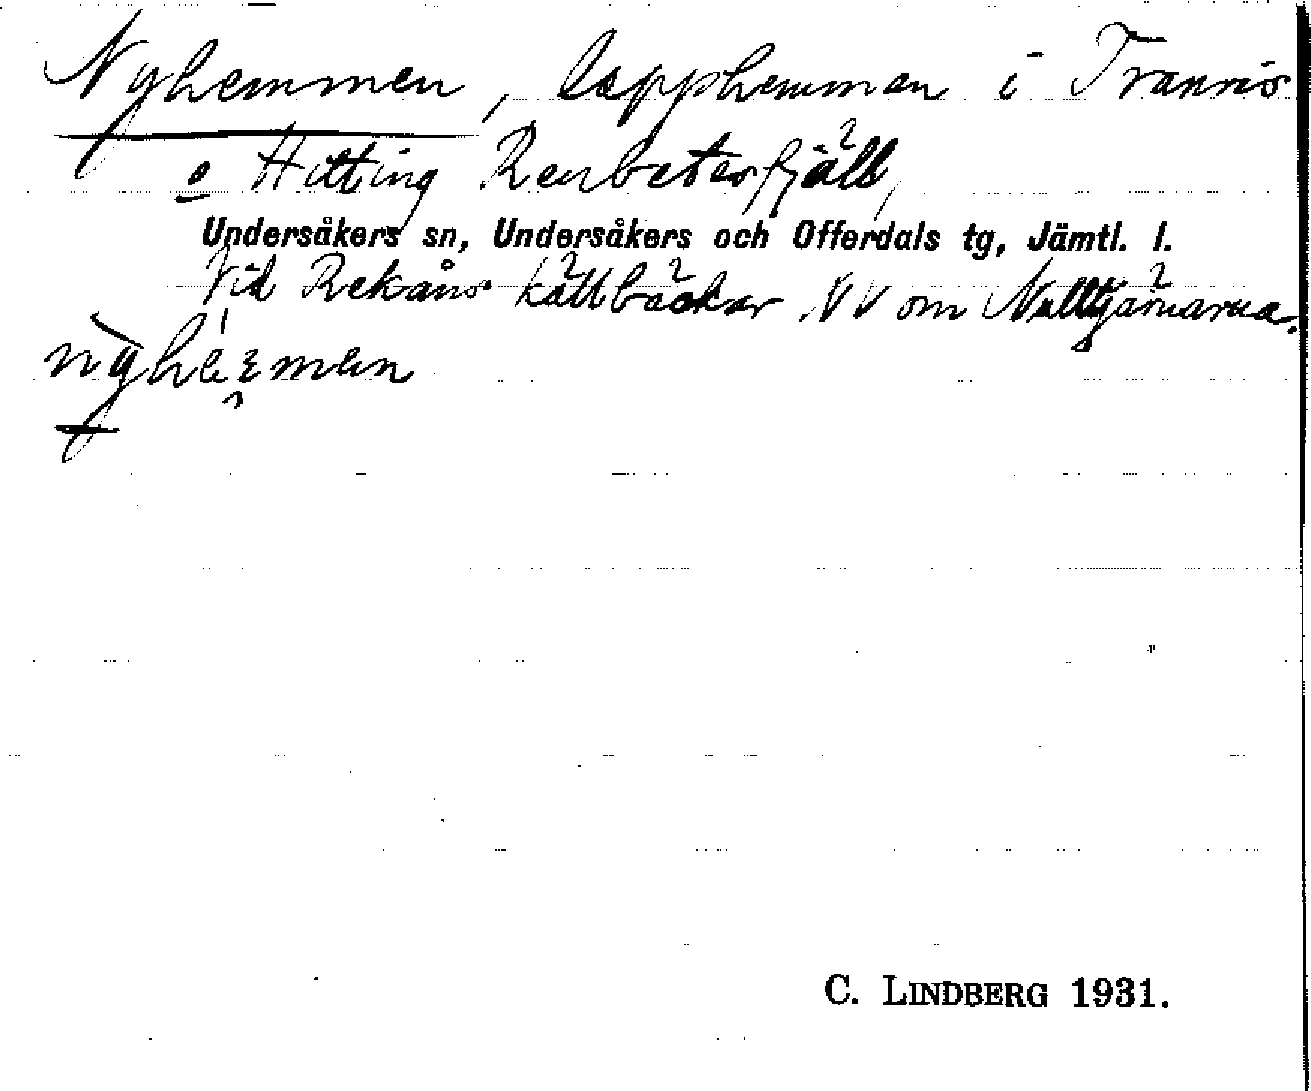 Nyhemmen, lapphemman i Tranris
o Hitting Renbetesfjäll,
Undersåkers sn, Undersåkers och Offerdals tg, Jämtl. l.
Vid Rekåns källbäckar NV om Nulltjärnarna.
C. LINDBERG 1931.